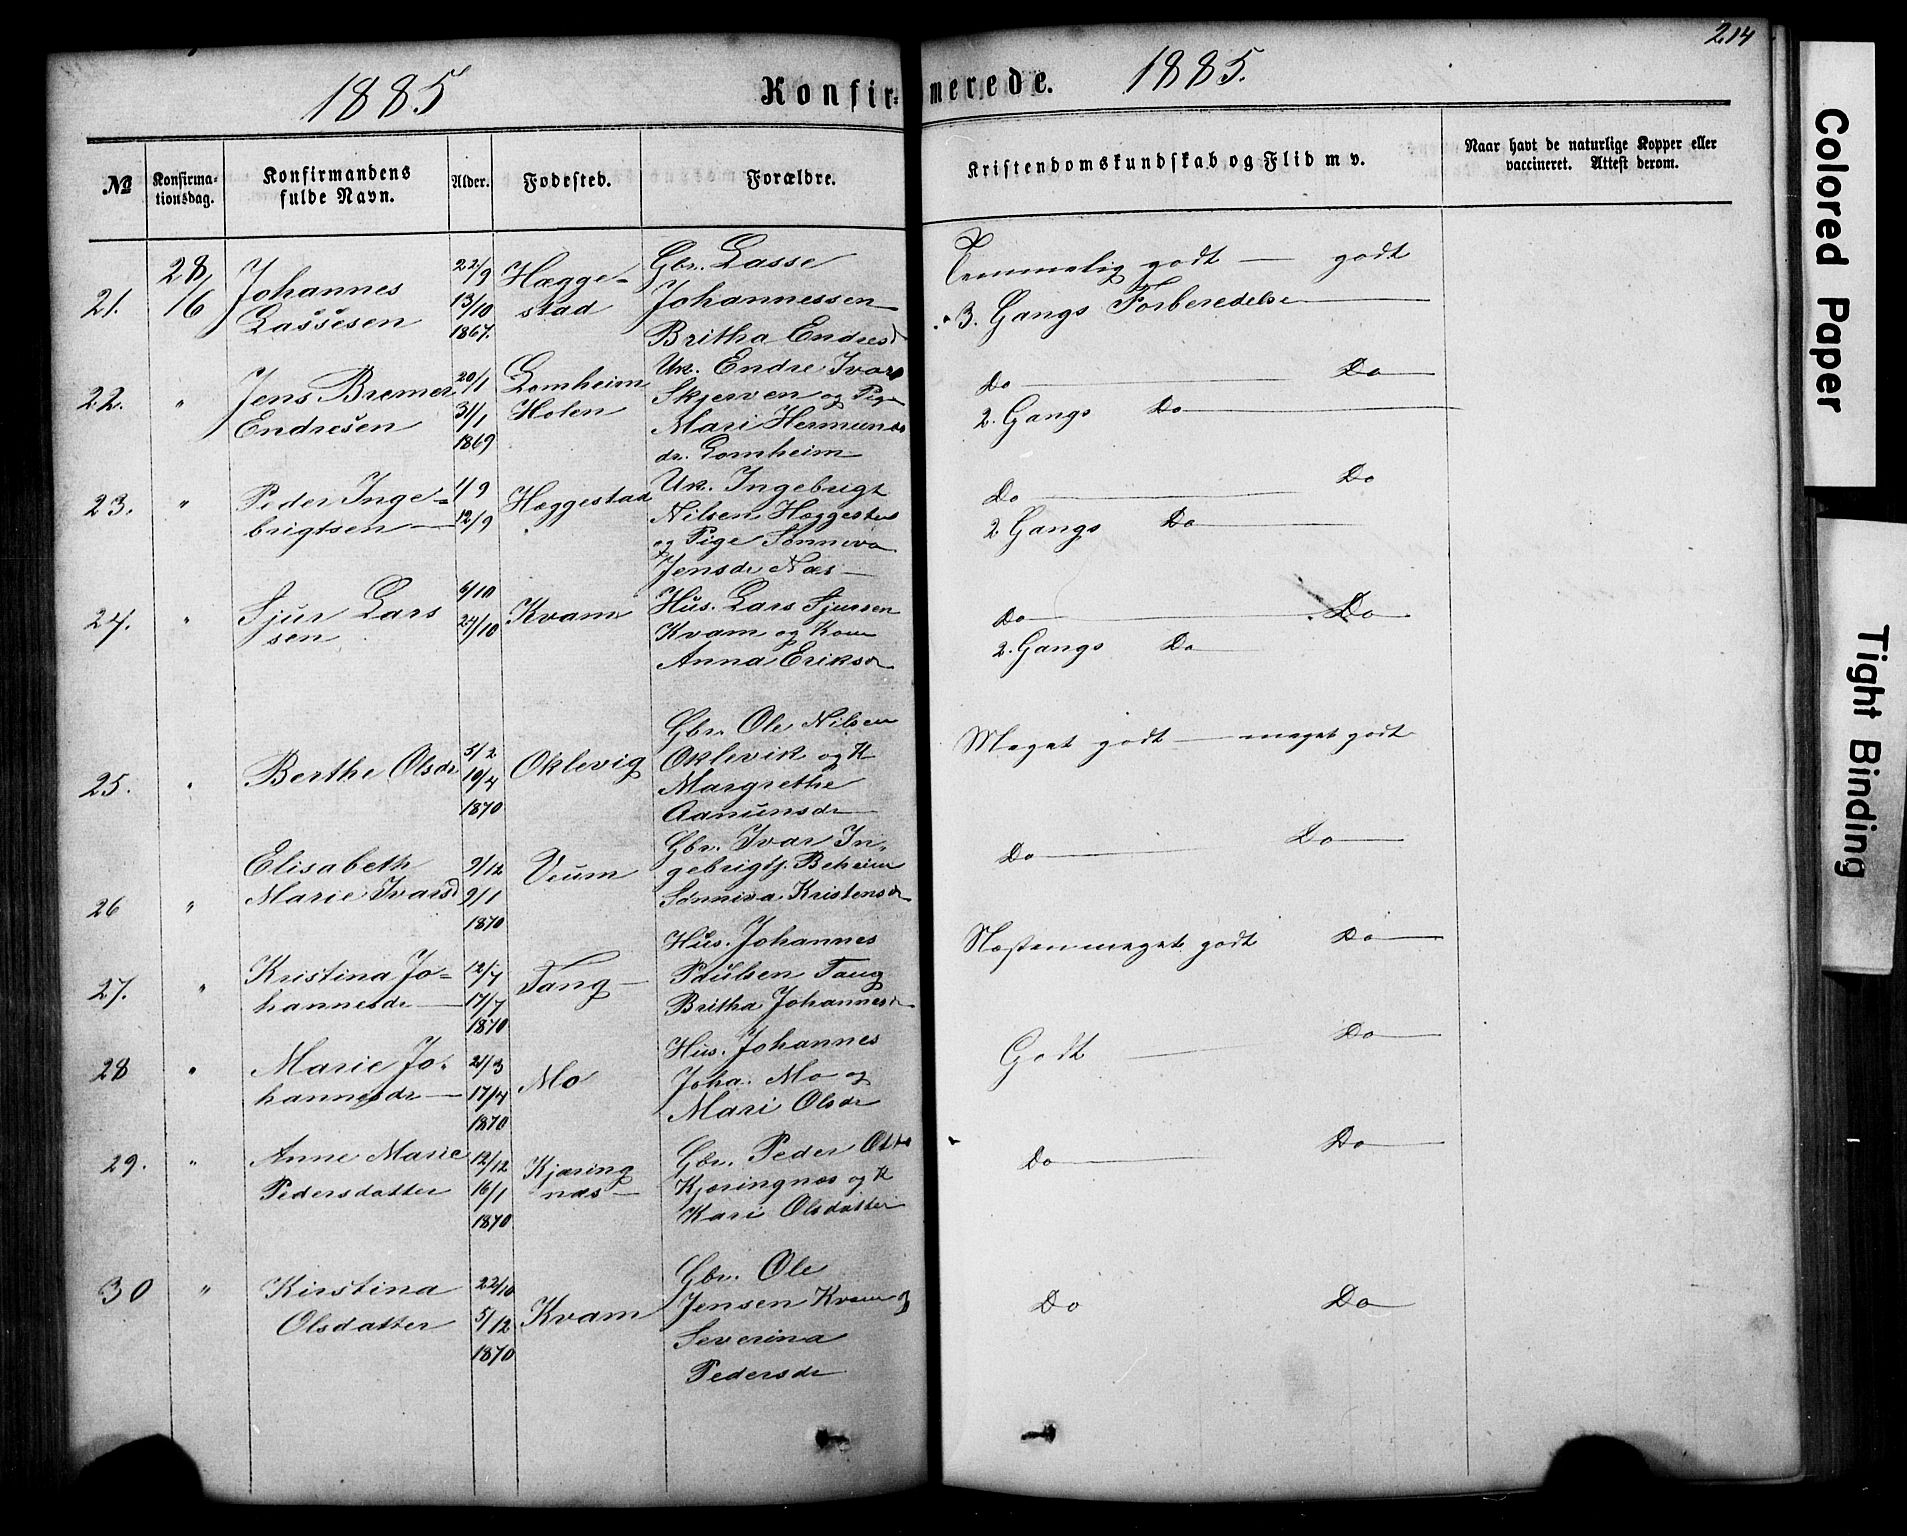 214
1885 Konfir- merede. 1885.
№ Konfirma-tionsdag. Konfirmandens fulde Navn. Alder. Fodested. Forældre. Kristendomskundskab og Flid m v. Naar havt de naturlige Kopper eller vaccineret. Attest derom.
21. 28/16 Johannes Lassesen 22/9 13/10 1867. Hægge-stad Gbr. Lasse
Johannessen
Britha Endresd
Temmelig godt — godt
3. Gangs Forberedelse
22. " Jens Bremer Endresen 20/1 31/1 1869 Lomheim Holen Uk. Endre Ivars
Skjerven og Pige
Mari Hermunds
dr. Lomheim
Do — Do
2. Gangs Do
23. " Peder Inge-brigtsen 1/9 12/9 Hæggestad Uk. Ingebrigt
Nilsen Hæggestad
og Pige Sønneva
Jensdr Næs
Do — Do
2 Gangs Do
24. " Sjur Lars sen 6/10 24/10 Kvam Hus. Lars Sjursen
Kvam og Kone
Anna Eriksdr
Do — Do
2. Gangs Do
25. " Berthe Olsdr 5/2 19/4 1870 Oklevig Gbr. Ole Nilsen
Oklevik og K
Margrethe
Aamunsdr
Meget godt — meget godt
26 " Elisabeth Marie Ivarsd 9/12 9/1 1870 Veum Gbr. Ivar In-
gebrigts. Beheim
Sønniva Kristensdr
Do — Do
27. " Kristina Jo-hannesdr 12/7 17/7 1870 Tang Hus. Johannes
Paulsen Tang
Britha Johannesdr
Næsten meget godt Do
28 " Marie Jo-hannesdr 21/3 17/4 1870 Mo Hus. Johannes
Joha. Mo og
Mari Olsdr
Godt — Do
29. " Anne Marie Pedersdatter 12/12 16/1 1870 Kjæring næs Gbr. Peder Ols
Kjæringnæs og K
Kari Olsdatter
Do — Do
30 " Kirstina Olsdatter 22/10 5/12 1870 Kvam Gbr. Ole
Jensen Kvam og
Severina
Pedersdr
Do Do
Colored Paper
Tight Binding